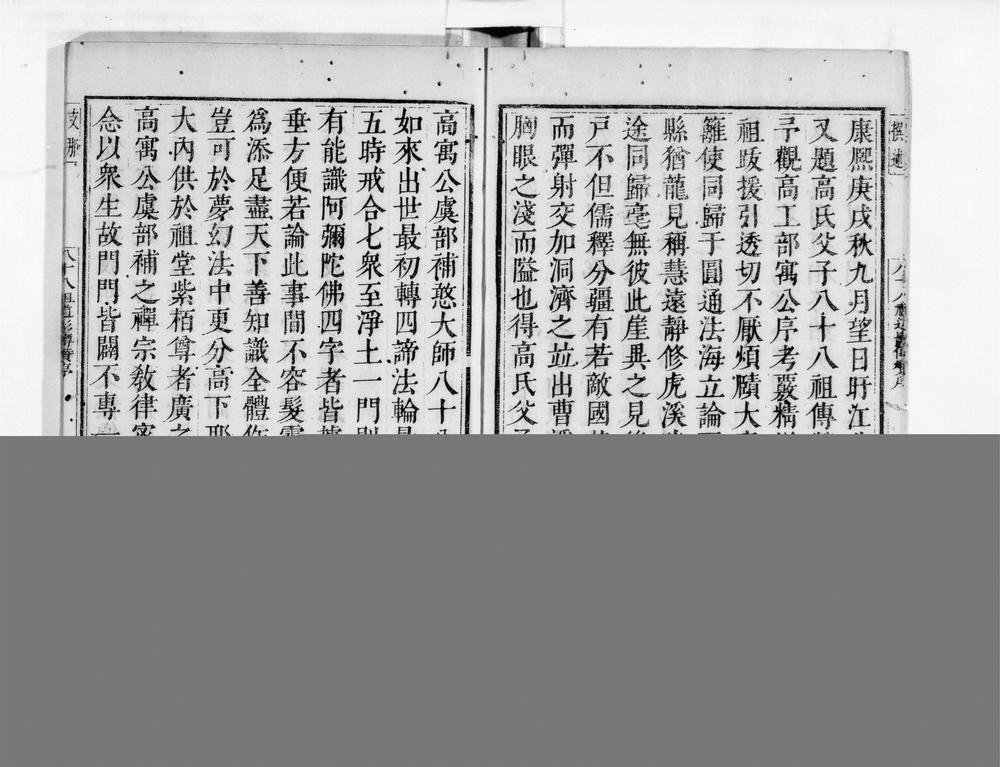 康熙庚戌秋九月望日旴江
又題高氏父子八十八祖傳
予觀高工部寓公序考覈精
祖跋援引透切不厭煩牘大
籬使同歸于圓通法海立論
縣猶龍見稱慧遠靜修虎溪
途同歸毫無彼此崖異之見
戸不但儒釋分疆有若敵國
而彈射交加洞濟之竝出曹
胸眼之淺而隘也得高氏父
高寓公虞部補憨大師八十
如來出世最初轉四諦法輪
五時戒合七衆至淨土一門
有能識阿彌陀佛四字者皆
垂方便若論此事間不容髮
爲添足盡天下善知識全體
豈可於夢幻法中更分高下
大內供於祖堂紫栢尊者廣
高寓公虞部補之禪宗敎律
念以衆生故門門皆闢不專